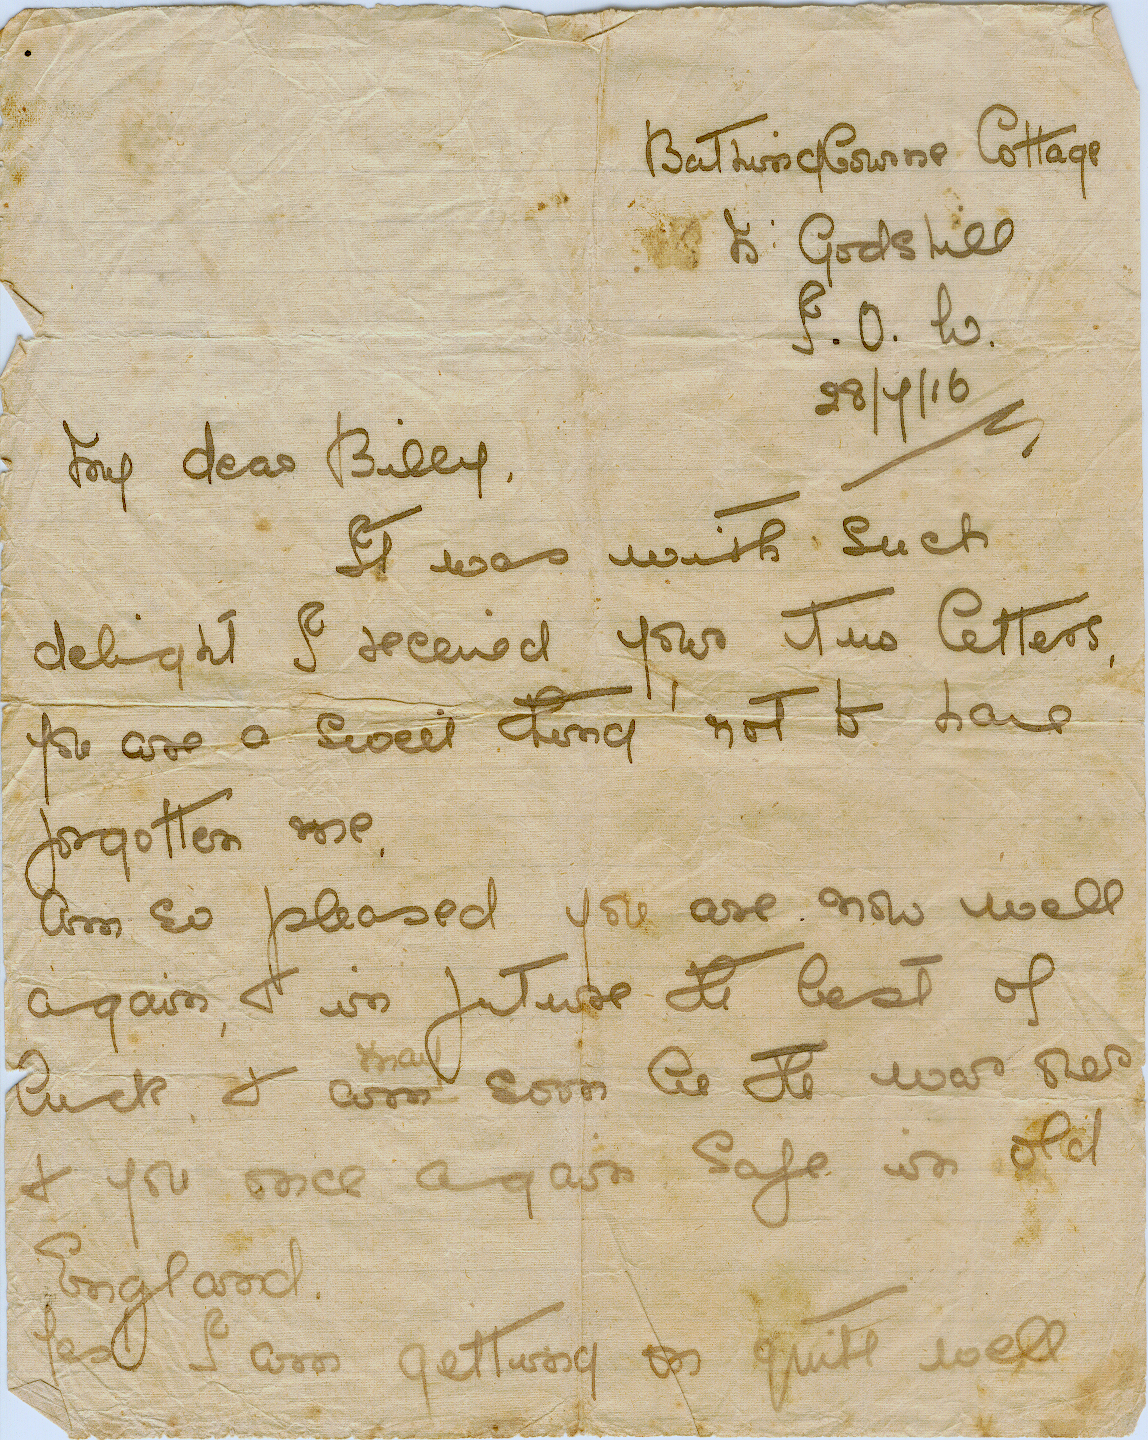 Cottage
Nr Godshill
I. O. W.
28/7/16
My dear Billy,
It was with such
delight I received your two letters,
you are a sweet thing not to have
forgotten me.
Am so pleased you are now well
again, & in future the best of
luck, & may soon be the war over
& you once again safe in old
England.
Yes I am getting on quite well